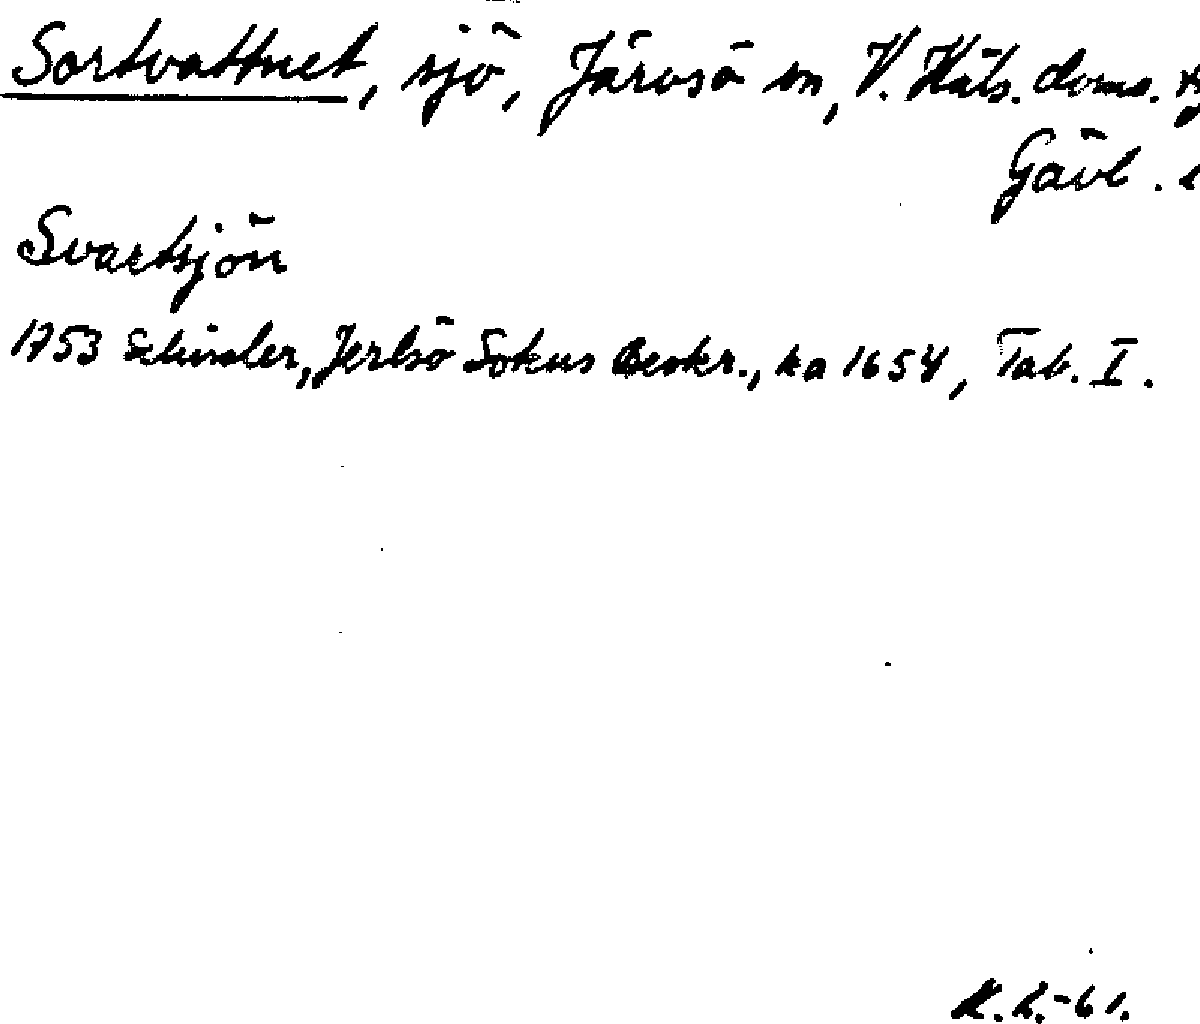 Sortvattnet, sjö, Järvsö sn, V. Häls. doms.
Gävl.
Svartsjön
1753 Schissler, Jerlsö Sokns Beskr., ka 1654, Tab. I.
K. L.-61.